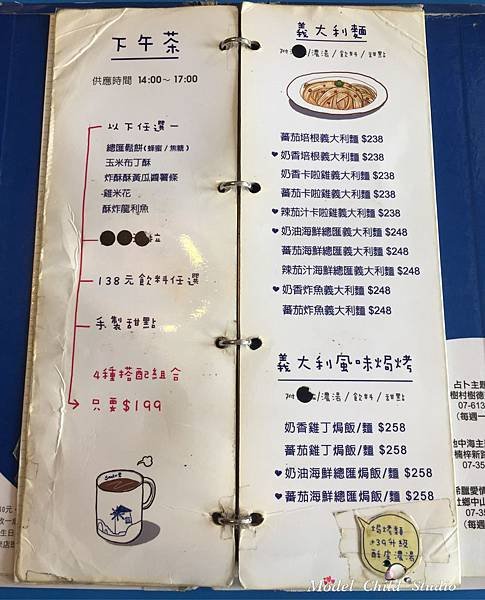 下午茶
供應時間 14:00～17:00
以下任選一
總匯鬆餅(蜂蜜/焦糖)
玉米布丁酥
炸酥酥黃瓜醬薯條
雞米花
酥炸龍利魚
138元飲料任選
手製甜點
4種搭配組合
只要$199
義大利麵
附/濃湯/飲料/甜點
蕃茄培根義大利麵 $238
奶香培根義大利麵 $238
奶香卡啦雞義大利麵 $238
蕃茄卡啦雞義大利麵 $238
辣茄汁卡啦雞義大利麵 $238
奶油海鮮總匯義大利麵 $248
蕃茄海鮮總匯義大利麵 $248
辣茄汁海鮮總匯義大利麵 $248
奶香炸魚義大利麵 $248
蕃茄炸魚義大利麵 $248
義大利風味焗烤
附/濃湯/飲料/甜點
奶香雞丁焗飯/麵 $258
蕃茄雞丁焗飯/麵 $258
奶油海鮮總匯焗飯/麵 $258
蕃茄海鮮總匯焗飯/麵 $258
焗烤麵
+39升級
酥皮濃湯
占卜主題
樹村樹德
07-613
(每週一
地中海主
楠梓新路
07-35
希臘愛情
07-35
(每週
Model Child Studio